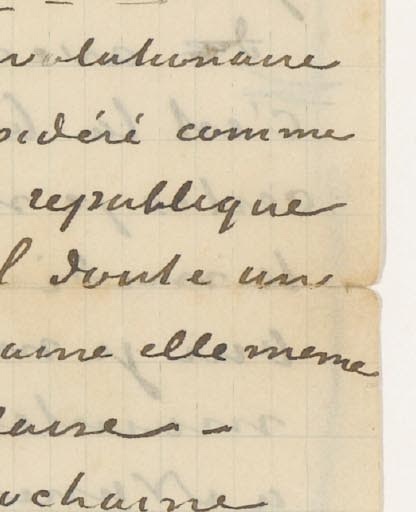 lutionaire
sidéré comme
republique
l doute un
aine elle meme
laire -
ochaine